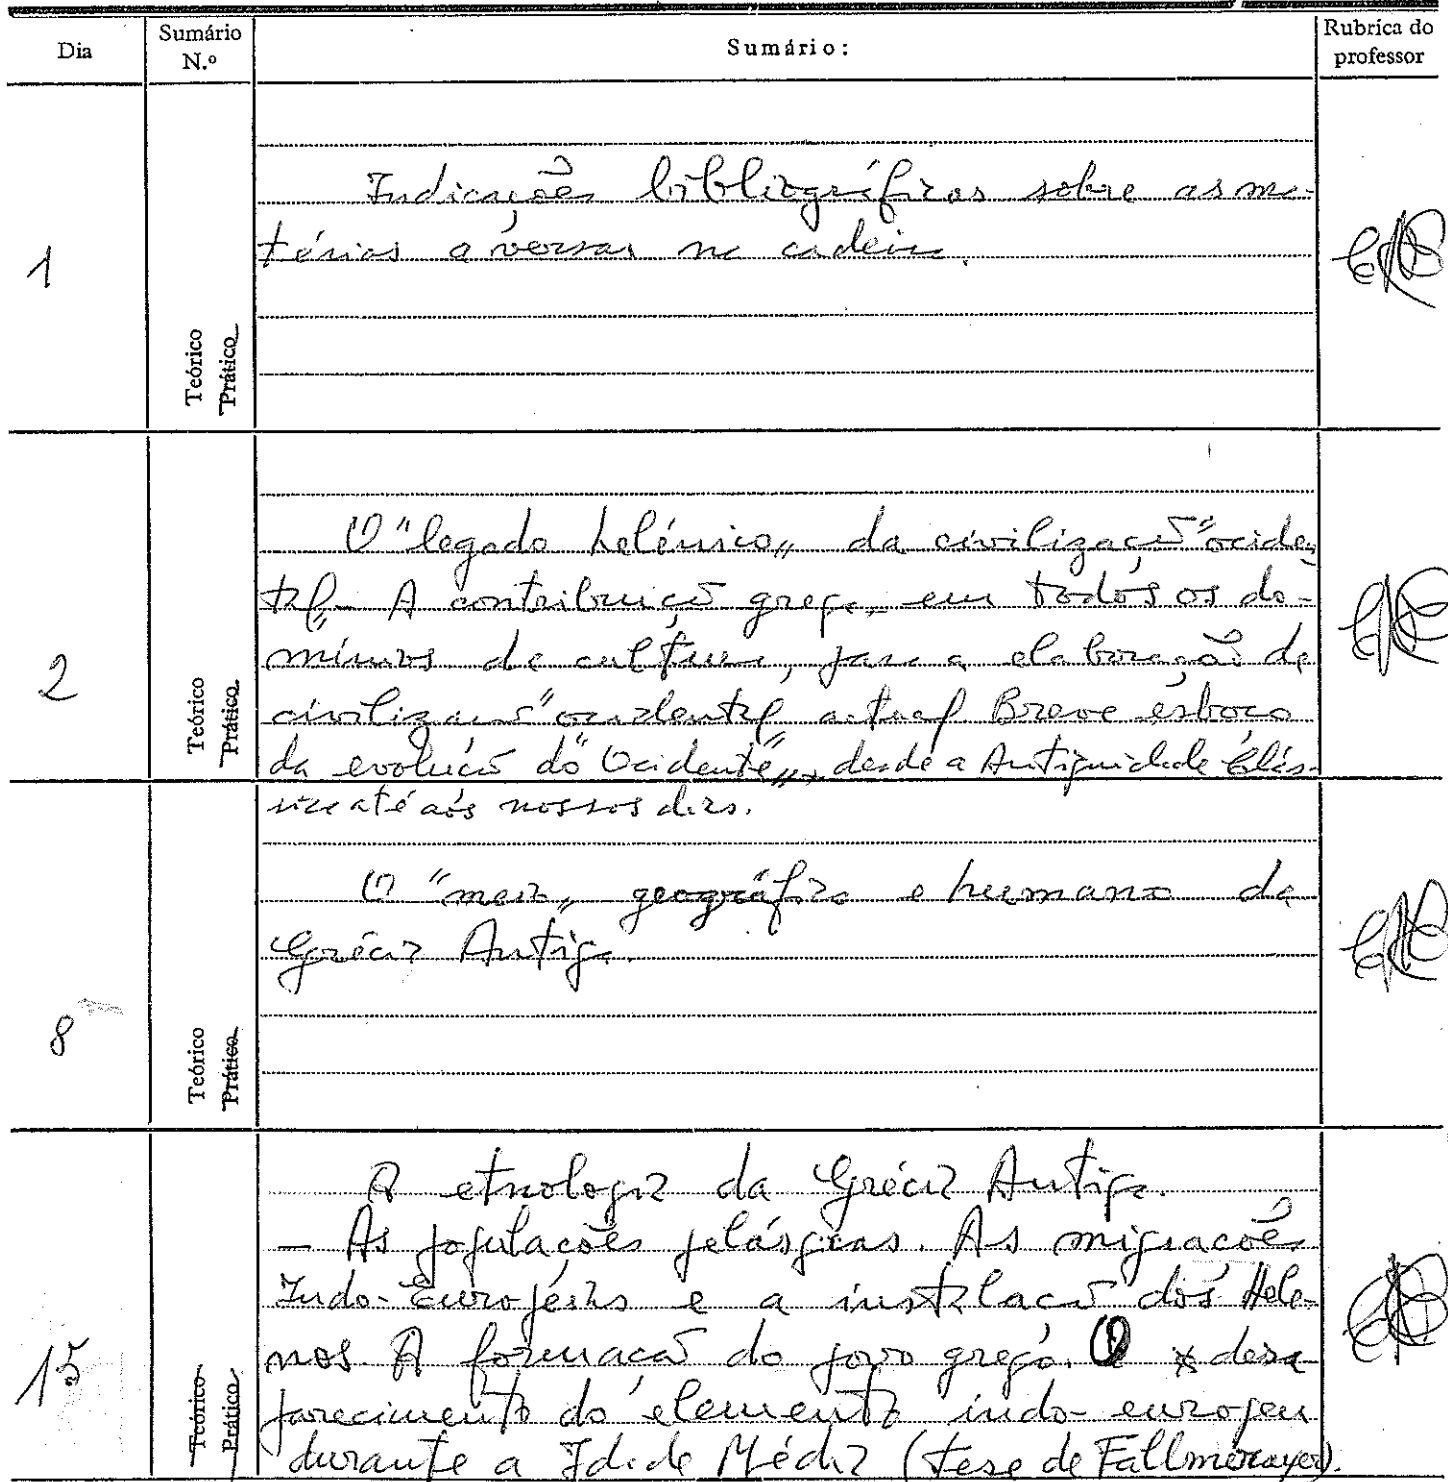 Dia Sumário N.º Sumário: Rubrica do professor
1
Teórico
Prático
Indicações bibliográficas sobre as ma-
térias a versar na cadeira.
2
Teórico
Prático
O "legado helénico" da civilização "ociden-
tal". A contribuição grega, em todos os do-
mínios da cultura, para a elaboração da
civilização "ocidental" actual. Breve esboço
da evolução do "Ocidente", desde a Antiguidade Clás-
sica até aos nossos dias.
8
Teórico
Prático
O "meio" geográfico e humano da
Grécia Antiga.
15
Teórico
Prático
A etnologia da Grécia Antiga.
— As populações pelásgicas. As migrações
Indo-Europeias e a instalação dos Hele-
nos. A formação do povo grego. O desa-
parecimento do elemento indo-europeu
durante a Idade Média (tese de Fallmerayer).